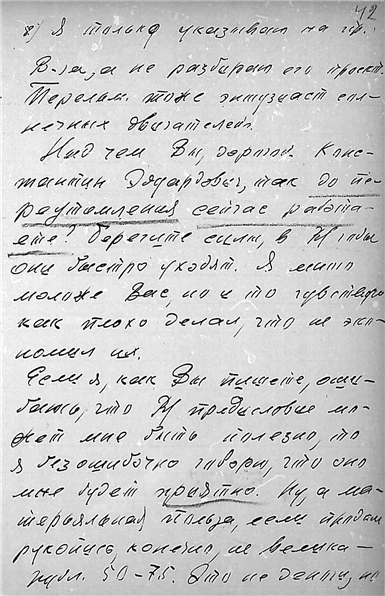 42
8) Я только указываю на гр.
В-га, а не разбираю его проект.
Перельм. тоже энтузиаст сол-
нечных двигателей.
Над чем Вы, дорогой Конс-
тантин Эдуардович, так до пе-
реутомления сейчас работа-
ете? Берегите силы, в годы
они быстро уходят. Я много
моложе Вас, но и то чувствую
как плохо делал, что не эко-
номил их.
Если я, как Вы пишете, оши-
баюсь, что предисловие мо-
жет мне быть полезно, то
я безошибочно говорю, что оно
мне будет приятно. Ну, а ма-
терьяльная польза, если продам
рукопись, конечно, не велика -
рубл. 50-75. Это не деньги, но